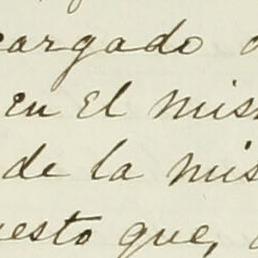 cargado
en el mis
de la mis
esto que,